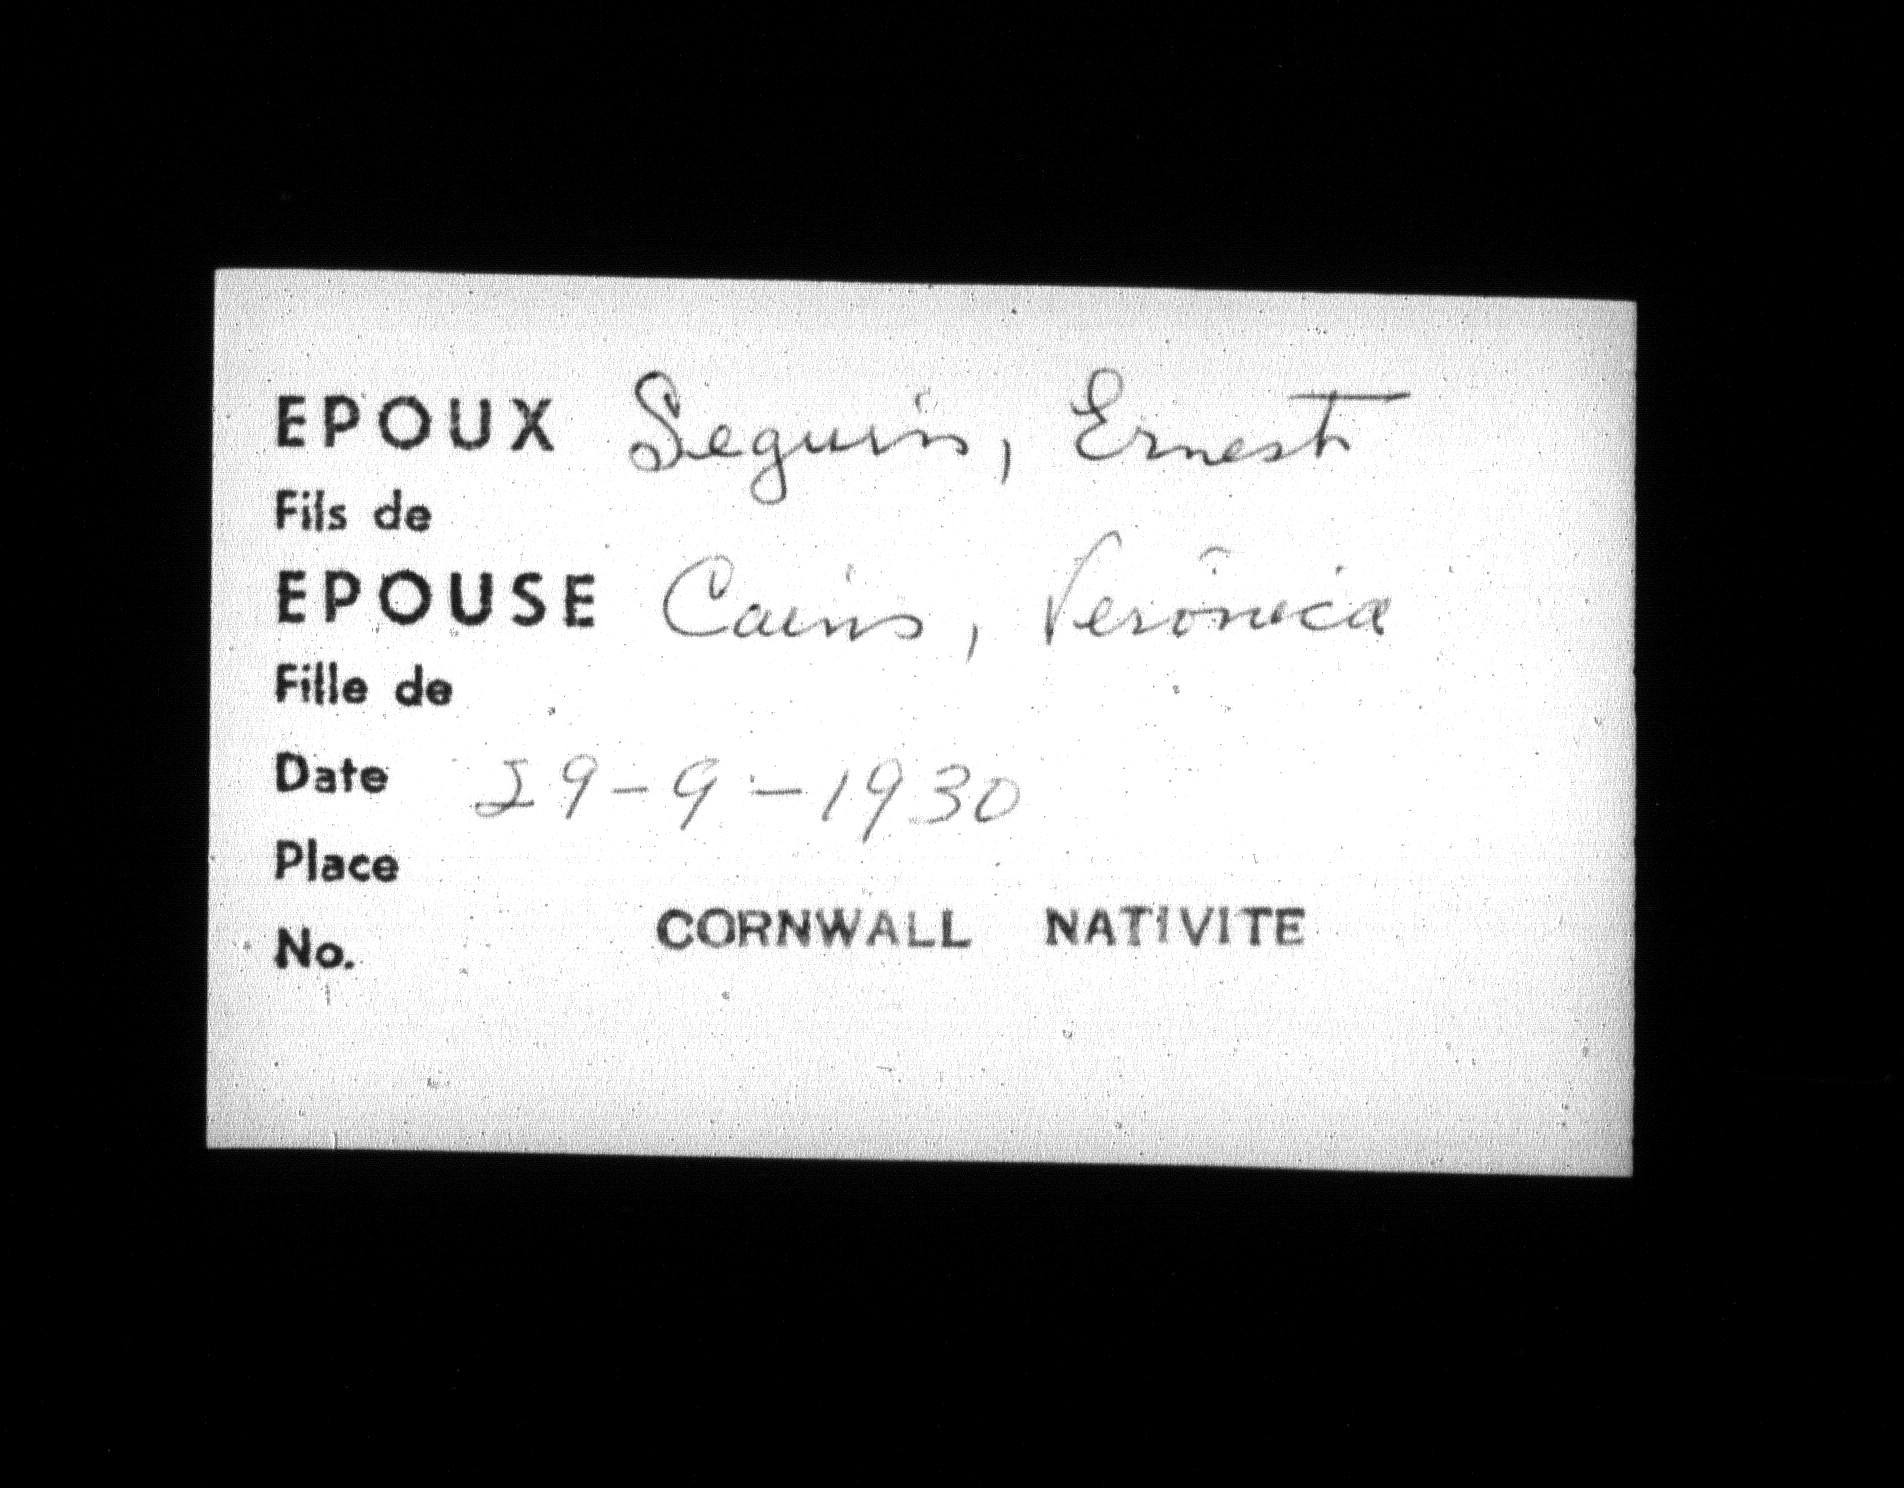 EPOUX Seguin, Ernest
Fils de
EPOUSE Cains, Veronica
Fille de
Date 29-9-1930
Place
No. CORNWALL NATIVITE